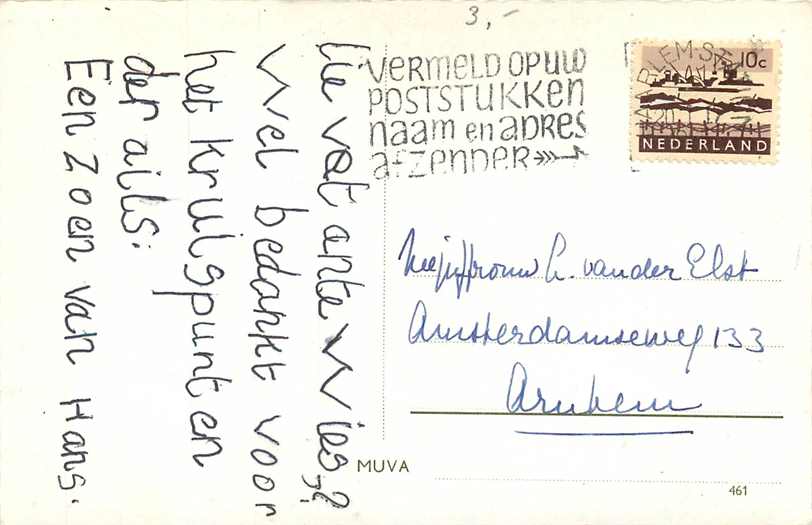 3,-
VERMELD OP UW
POSTSTUKKEN
naam en adres
afzender
10c
NEDERLAND
Wel bedankt voor
het kruispunt en
der ails.
Een zoen van Hans.
Mejuffrouw L. van der Elst
Amsterdamseweg 133
Arnhem
MUVA
461